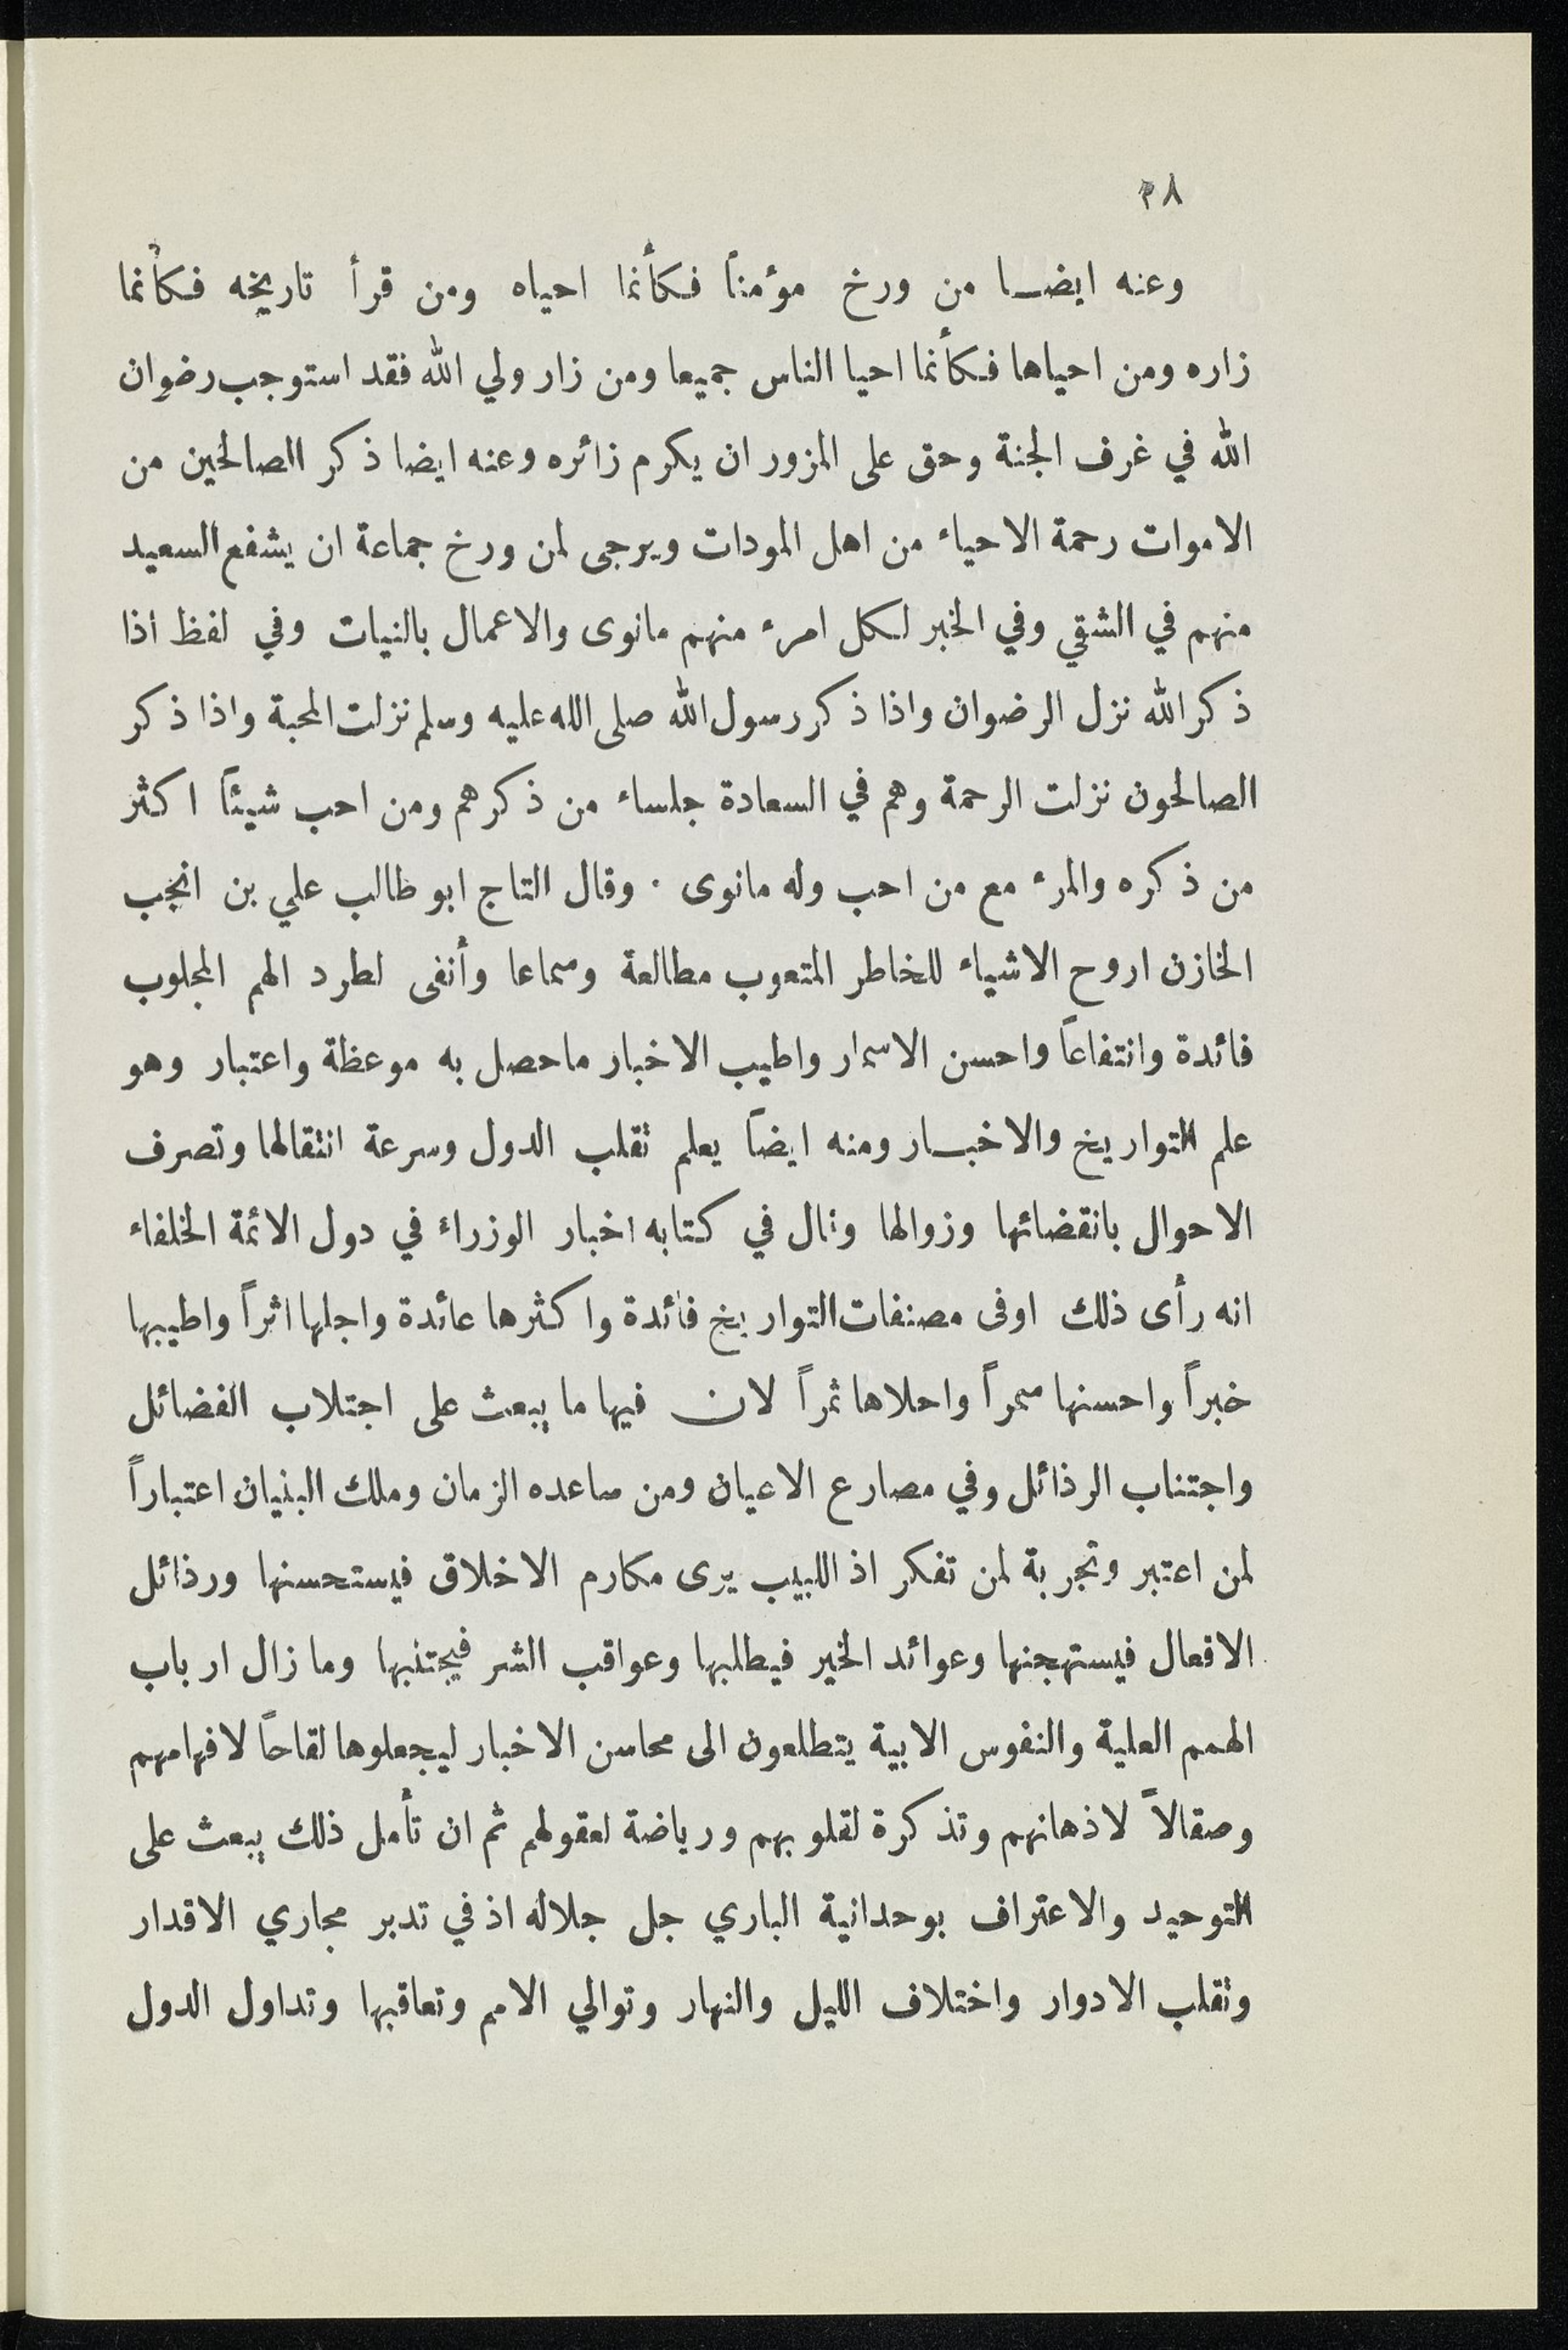 ٢٨
وعنه ايضا من ورخ مؤمناً فكأنما احياه ومن قرأ تاريخه فكأنما
زاره ومن احياها فكأنما احيا الناس جميعا ومن زار ولي الله فقد استوجب رضوان
الله في غرف الجنة وحق على المزور ان يكرم زائره وعنه ايضا ذكر الصالحين من
الاموات رحمة الاحياء من اهل المودات ويرجى لمن ورخ جماعة ان يشفع السعيد
منهم في الشقي وفي الخبر لكل امرء منهم مانوى والاعمال بالنيات وفي لفظ اذا
ذكر الله نزل الرضوان واذا ذكر رسول الله صلى الله عليه وسلم نزلت المحبة واذا ذكر
الصالحون نزلت الرحمة وهم في السعادة جلساء من ذكرهم ومن احب شيئاً اكثر
من ذكره والمرء مع من احب وله مانوى . وقال التاج ابو طالب علي بن انجب
الخازن اروح الاشياء للخاطر المتعوب مطالعة وسماعا وأنفى لطرد الهم المجلوب
فائدة وانتفاعاً واحسن الاسمار واطيب الاخبار ماحصل به موعظة واعتبار وهو
علم التواريخ والاخبار ومنه ايضاً يعلم تقلب الدول وسرعة انتقالها وتصرف
الاحوال بانقضائها وزوالها وقال في كتابه اخبار الوزراء في دول الائمة الخلفاء
انه رأى ذلك اوفى مصنفات التواريخ فائدة واكثرها عائدة واجلها اثراً واطيبها
خبراً واحسنها سمراً واحلاها ثمراً لان فيها ما يبعث على اجتلاب الفضائل
واجتناب الرذائل وفي مصارع الاعيان ومن ساعده الزمان وملك البنيان اعتباراً
لمن اعتبر وتجربة لمن تفكر اذ اللبيب يرى مكارم الاخلاق فيستحسنها ورذائل
الافعال فيستهجنها وعوائد الخير فيطلبها وعواقب الشر فيجتنبها وما زال ارباب
الهمم العلية والنفوس الابية يتطلعون الى محاسن الاخبار ليجعلوها لقاحاً لافهامهم
وصقالاً لاذهانهم وتذكرة لقلوبهم ورياضة لعقولهم ثم ان تأمل ذلك يبعث على
التوحيد والاعتراف بوحدانية الباري جل جلاله اذ في تدبر مجاري الاقدار
وتقلب الادوار واختلاف الليل والنهار وتوالي الامم وتعاقبها وتداول الدول